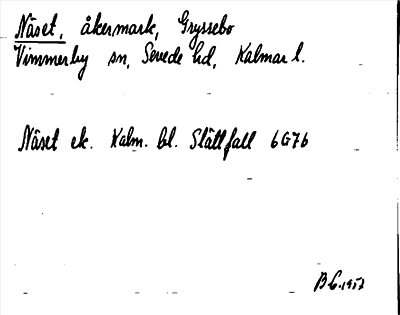 Näset, åkermark, Gryssebo
Vimmerby sn, Sevede hd, Kalmar l.
Näset ek. Kalm. bl. Slättfall 6G7b